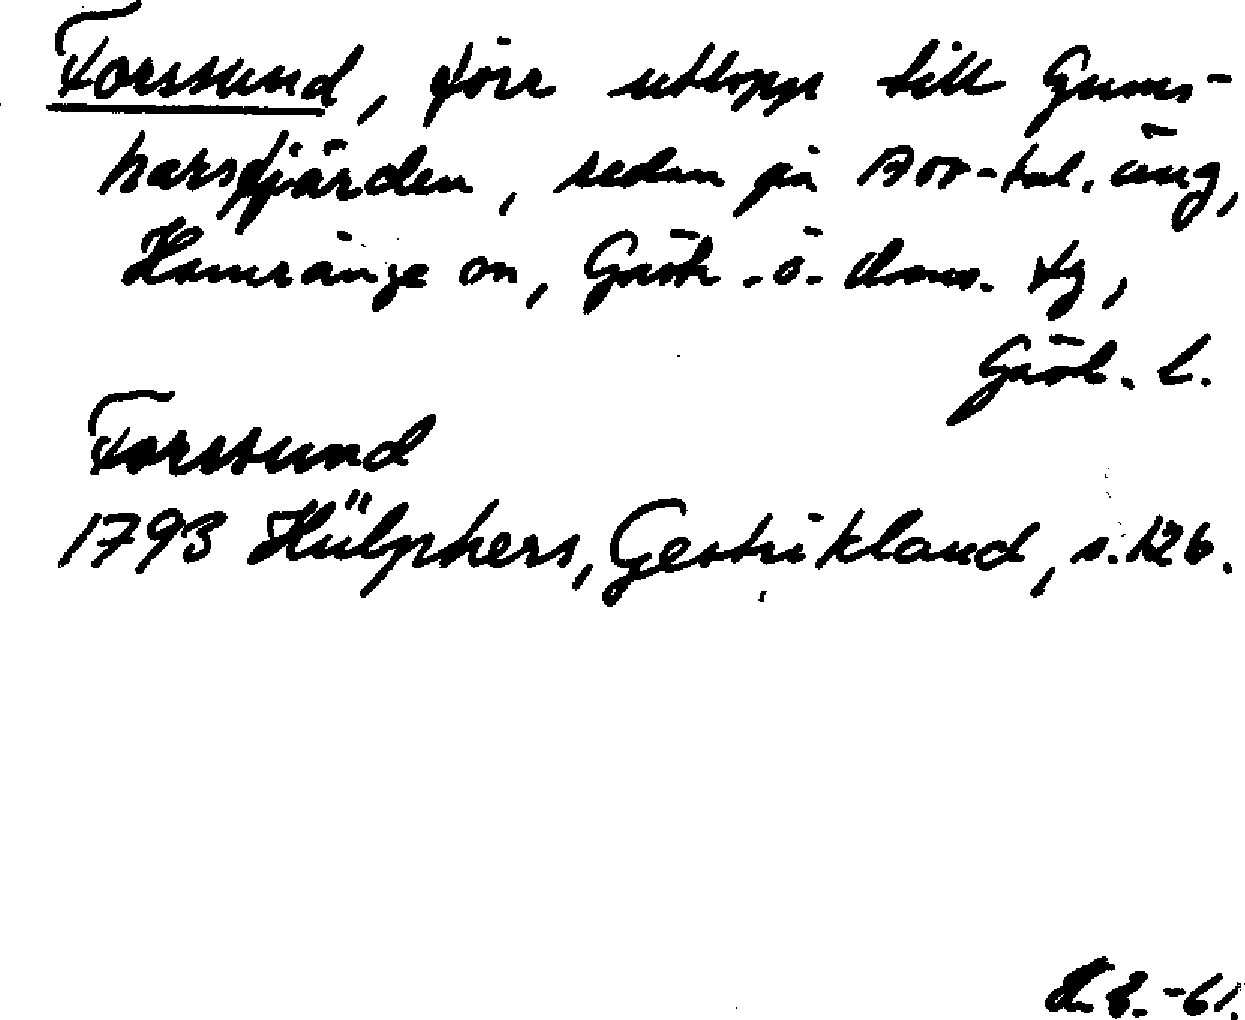 Forssund, förr utlopp till Gums-
harsfjärden, sedan på 1700-tal. äng,
Hamrånge sn, Gästr. ö. doms. tg,
Gävl. l.
Forssund
1793 Hülphers, Gestrikland, s. 126.
-61.